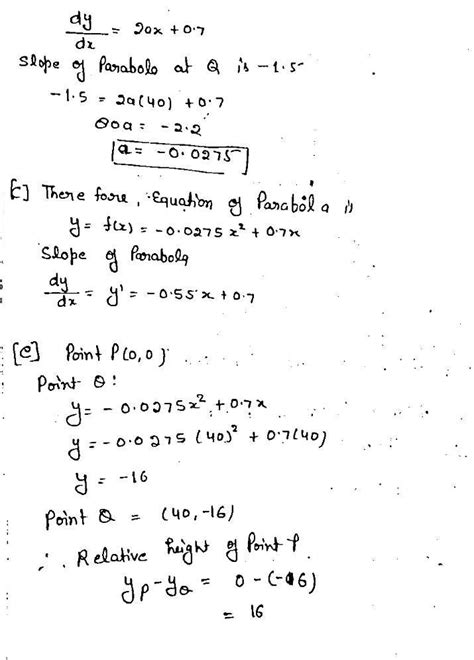 dy/dx = 2ax + 0.7
Slope of Parabola at Q is -1.5
-1.5 = 2a(40) + 0.7
80a = -2.2
a = -0.0275
[C] There fore, Equation of Parabola is
y = f(x) = -0.0275x² + 0.7x
Slope of Parabola
dy/dx = y' = -0.55x + 0.7
[e] Point P(0,0)
Point Q:
y = -0.0275x² + 0.7x
y = -0.0275 (40)² + 0.7(40)
y = -16
Point Q = (40, -16)
∴ Relative height of Point P
yP - yQ = 0 - (-16)
= 16